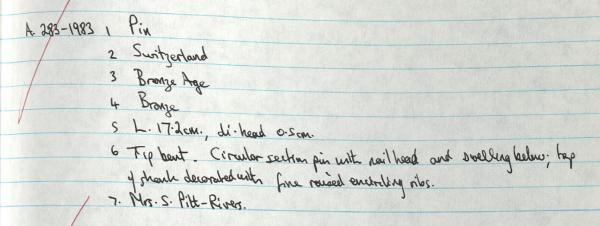 A. 283-1983 1 Pin
2 Switzerland
3 Bronze Age
4 Bronze
5 L. 17.2cm., di. head 0.5cm.
6 Tip bent. Circular section pin with nail head and swelling below; top
of shank decorated with fine raised encircling ribs.
7. Mrs. S. Pitt-Rivers.